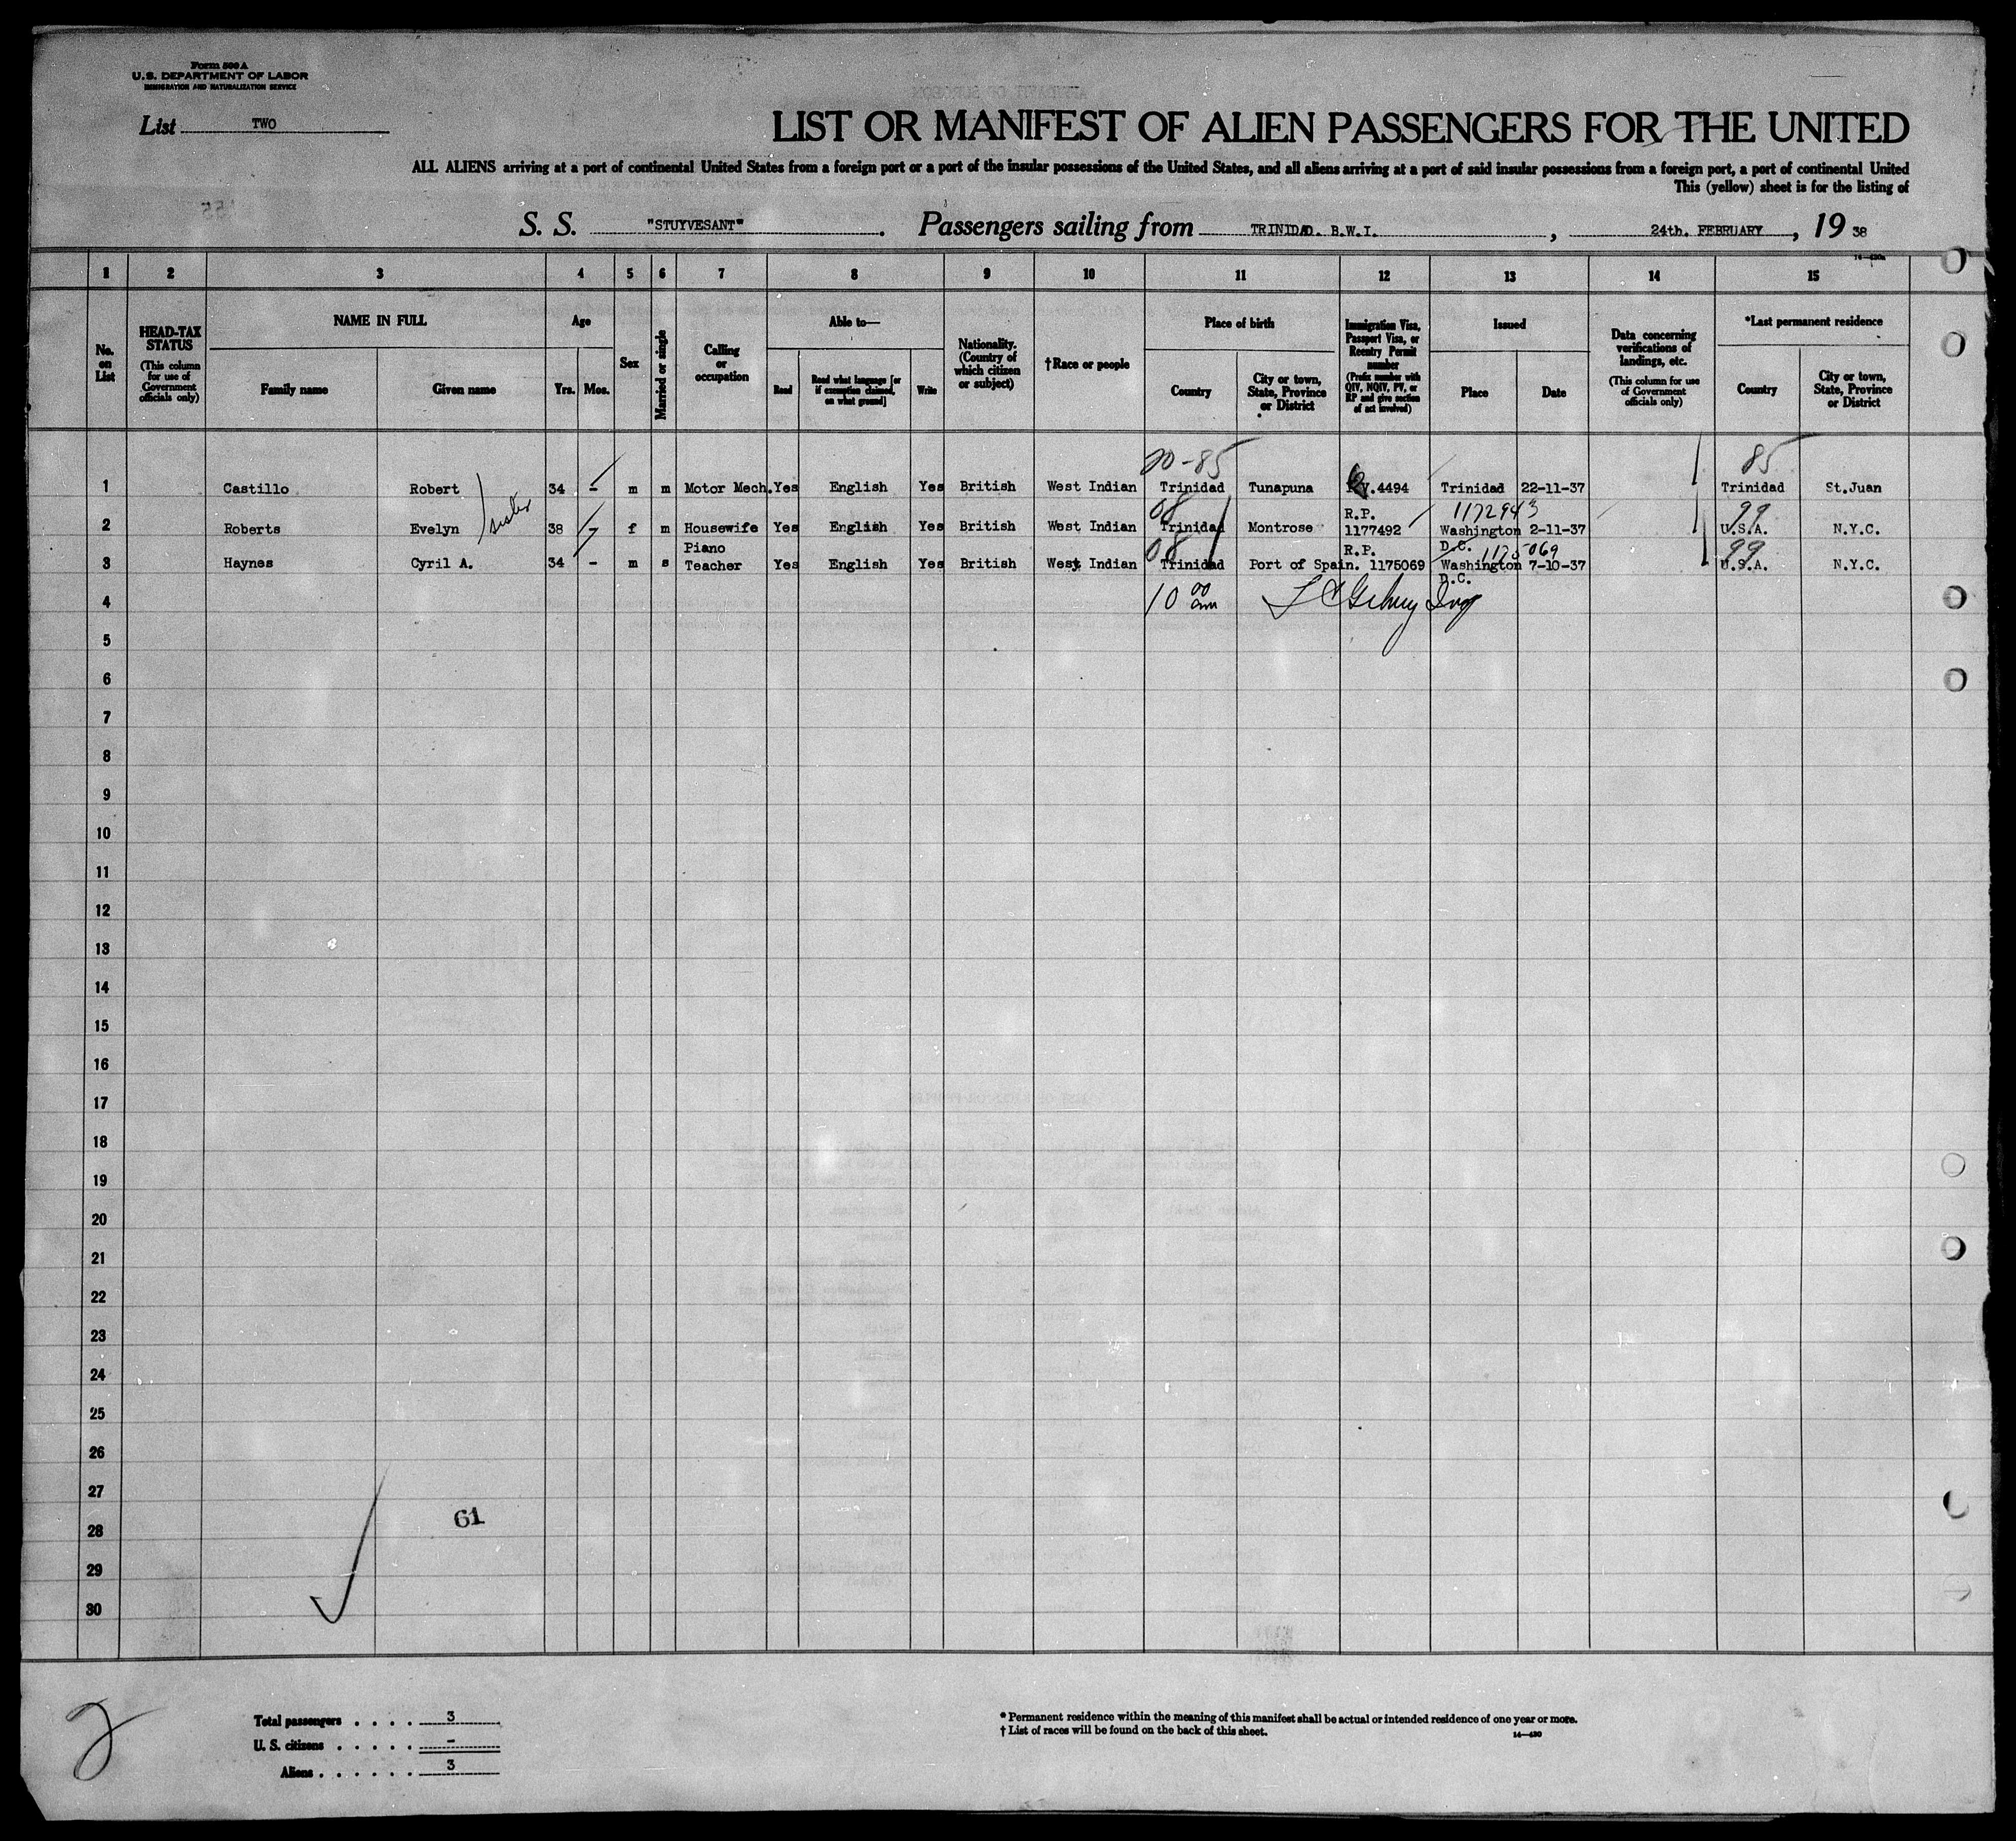 Form 500 A
U.S. DEPARTMENT OF LABOR
IMMIGRATION AND NATURALIZATION SERVICE
List TWO
LIST OR MANIFEST OF ALIEN PASSENGERS FOR THE UNITED
ALL ALIENS arriving at a port of continental United States from a foreign port or a port of the insular possessions of the United States, and all aliens arriving at a port of said insular possessions from a foreign port, a port of continental United
This (yellow) sheet is for the listing of
S. S. "STUYVESANT". Passengers sailing from TRINIDAD. B.W.I., 24th. FEBRUARY, 19 38
1 2 3 4 5 6 7 8 9 10 11 12 13 14 15
No. on List
HEAD-TAX STATUS (This column for use of Government officials only)
NAME IN FULL Family name Given name
Age Yrs. Mos.
Sex
Married or single
Calling or occupation
Able to— Read Read what language [or if exemption claimed, on what ground] Write
Nationality. (Country of which citizen or subject)
†Race or people
Place of birth Country City or town, State, Province or District
Immigration Visa, Passport Visa, or Reentry Permit number (Prefix number with QIV, NQIV, PV, or RP and give section of act involved)
Issued Place Date
Data concerning verifications of landings, etc. (This column for use of Government officials only)
*Last permanent residence Country City or town, State, Province or District
20-85 85
1 Castillo Robert 34 - m m Motor Mech. Yes English Yes British West Indian Trinidad Tunapuna V.4494 Trinidad 22-11-37 Trinidad St.Juan
sister
08 R.P. 1172943 99
2 Roberts Evelyn 38 f m Housewife Yes English Yes British West Indian Trinidad Montrose 1177492 Washington 2-11-37 U.S.A. N.Y.C.
Piano 08 R.P. D.C. 1175069 99
3 Haynes Cyril A. 34 - m s Teacher Yes English Yes British West Indian Trinidad Port of Spain. 1175069 Washington 7-10-37 U.S.A. N.Y.C.
D.C.
4 10 00 am Insp
5
6
7
8
9
10
11
12
13
14
15
16
17
18
19
20
21
22
23
24
25
26
27
61
28
29
30
2
Total passengers . . . . 3
U. S. citizens . . . . . -
Aliens . . . . . . 3
* Permanent residence within the meaning of this manifest shall be actual or intended residence of one year or more.
† List of races will be found on the back of this sheet.
14—430